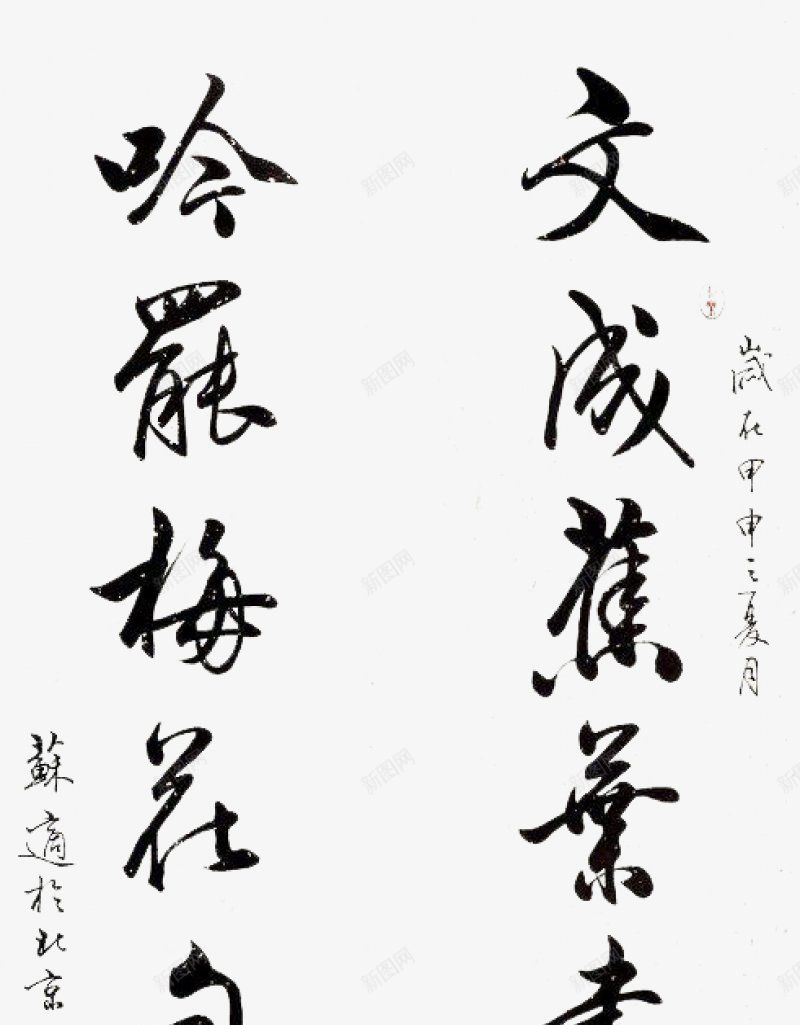 歲在甲申之夏月
文成蕉葉書
吟罷梅花句
蘇適於北京
新图网